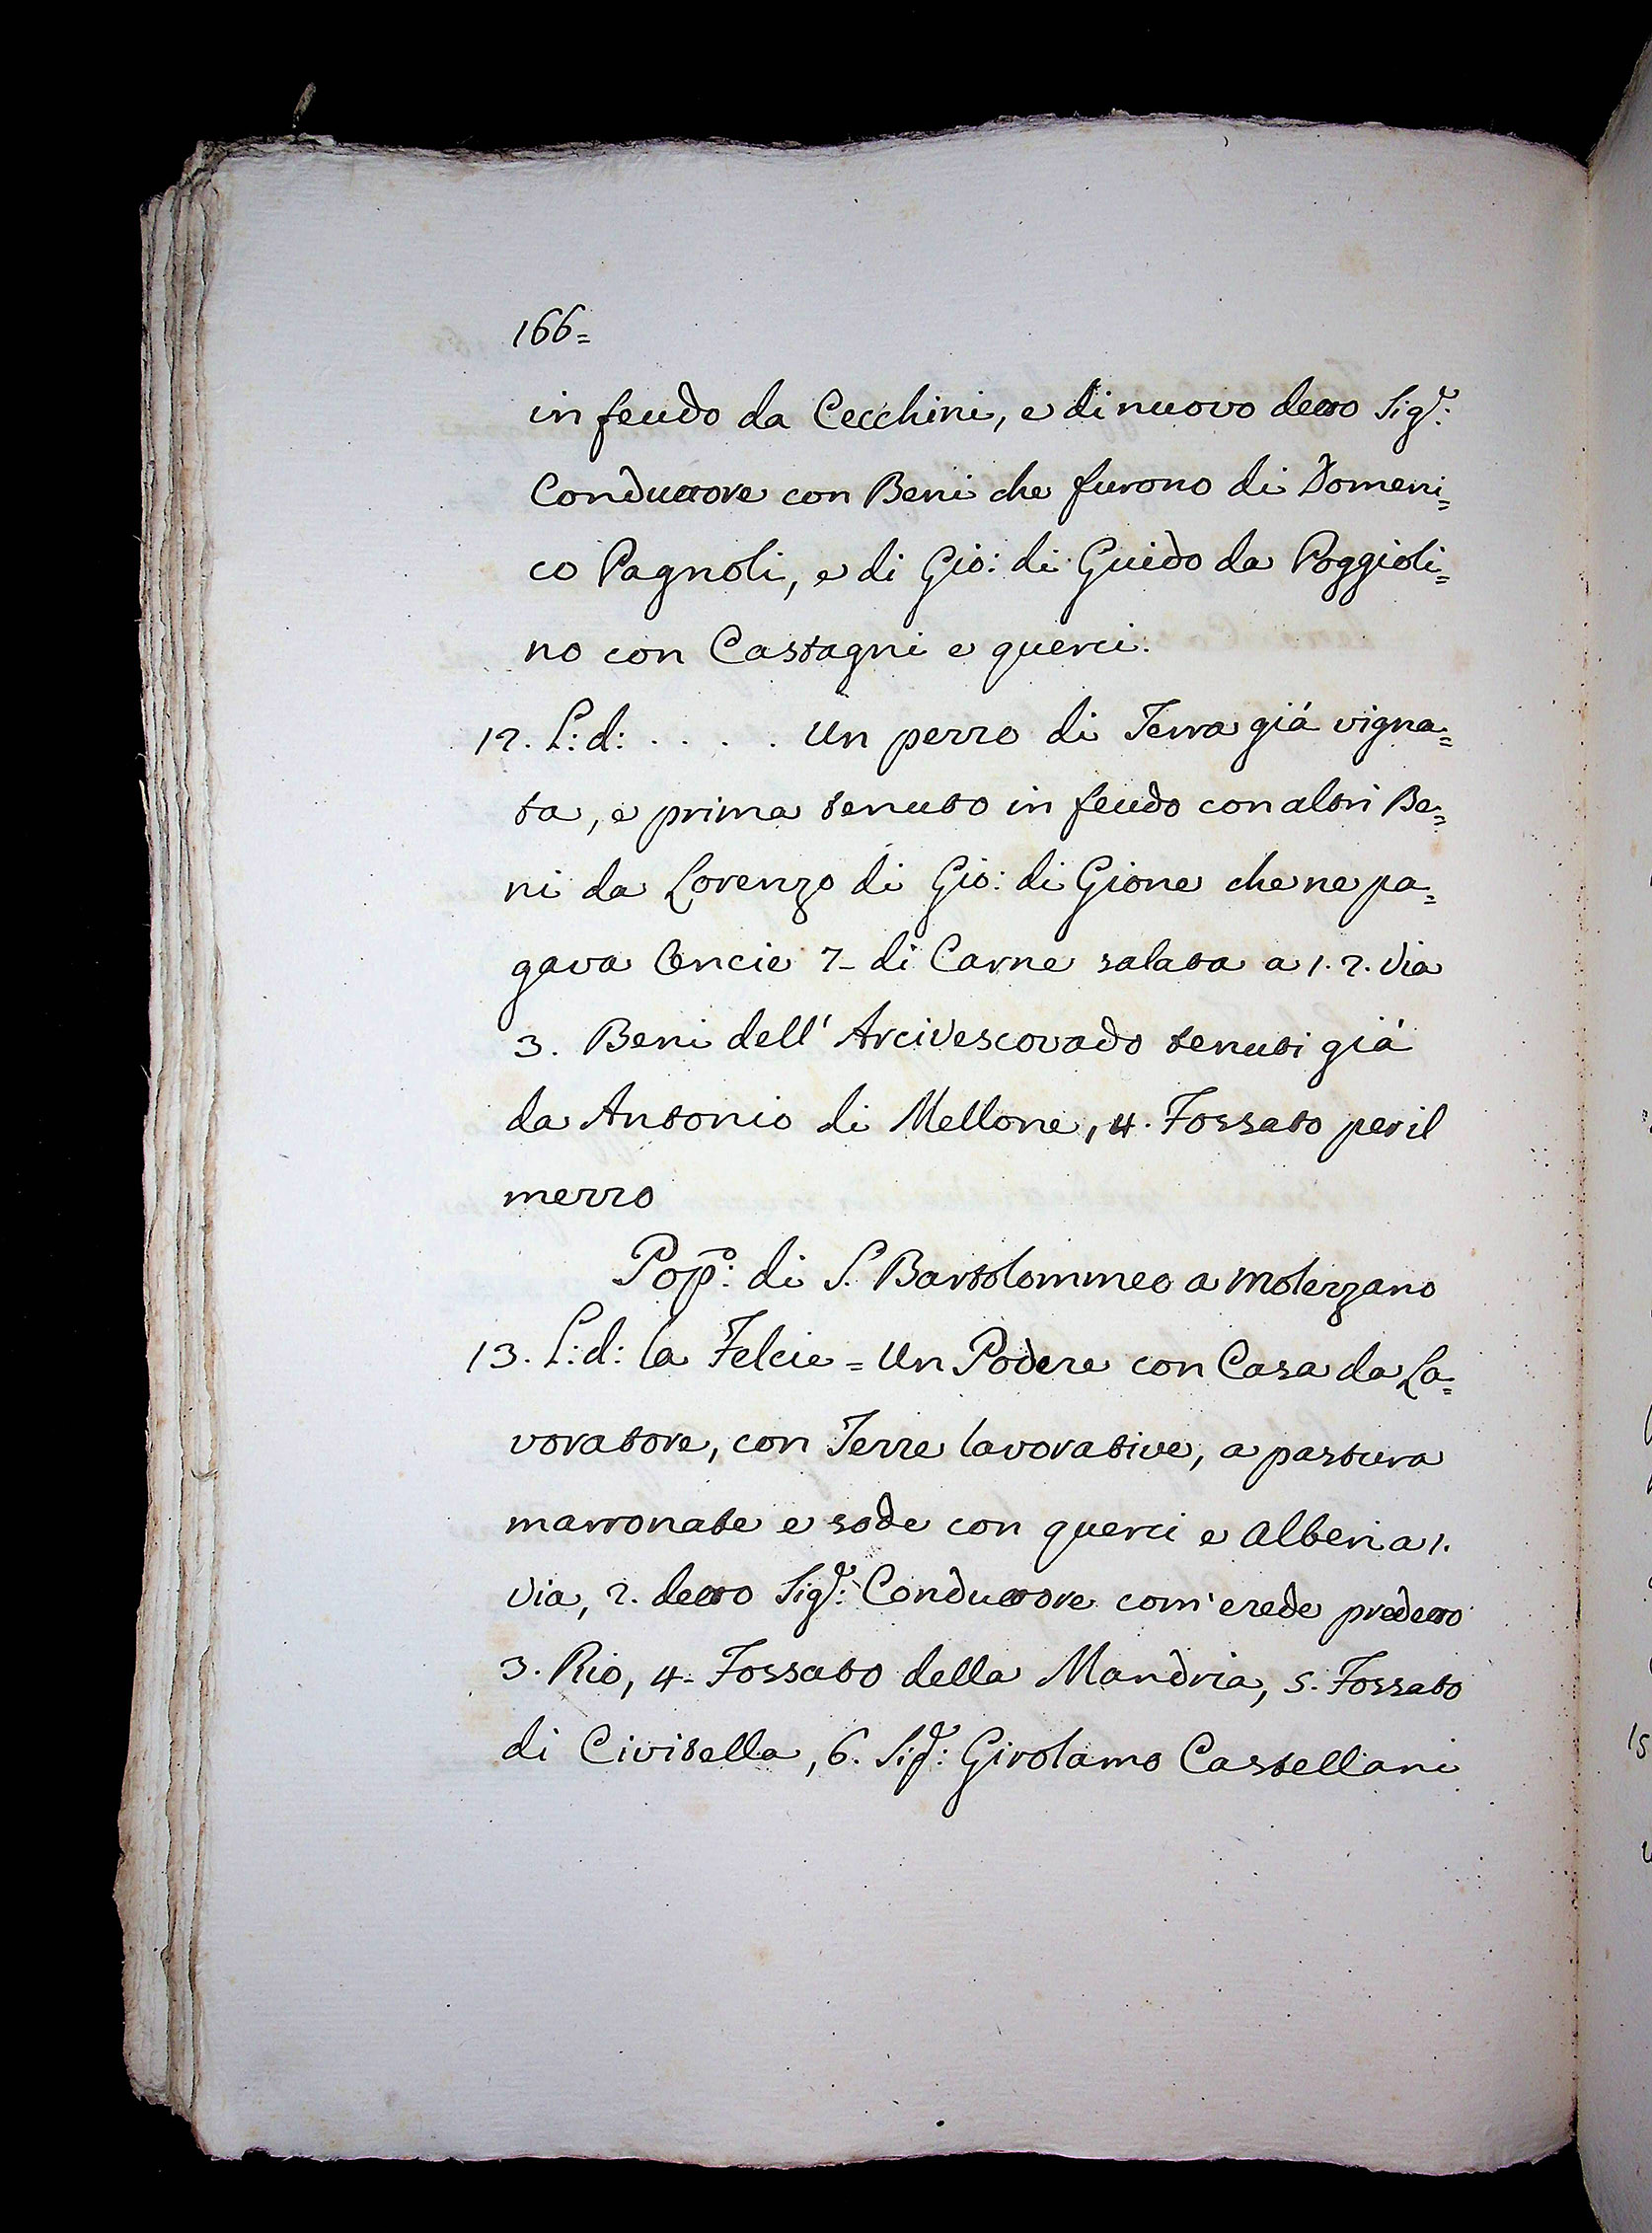 166=
in feudo da Cecchini, e di nuovo detto Sig.r:
Conduttore con Beni che furono di Domeni=
co Pagnoli, e di Gio: di Guido da Poggioli=
no con Castagni e querci.
12. L: d: . . . . Un pezzo di Terra già vigna=
ta, e prima tenuto in feudo con altri Be=
ni da Lorenzo di Gio: di Gione che ne pa=
gava Oncie 7- di Carne salata a 1. 2. Via
3. Beni dell' Arcivescovado tenuti già
da Antonio di Mellone, 4. Fossato per il
mezzo
Pop.o: di S. Bartolommeo a Molezzano
13. L: d: la Felcie = Un Podere con Casa da La=
voratore, con Terre lavorative, a pastura
marronate e sode con querci e Alberi a 1.
Via, 2. detto Sig.r: Conduttore com' erede predetto
3. Rio, 4. Fossato della Mandria, 5. Fossato
di Civitella, 6. Sig.r: Girolamo Castellani